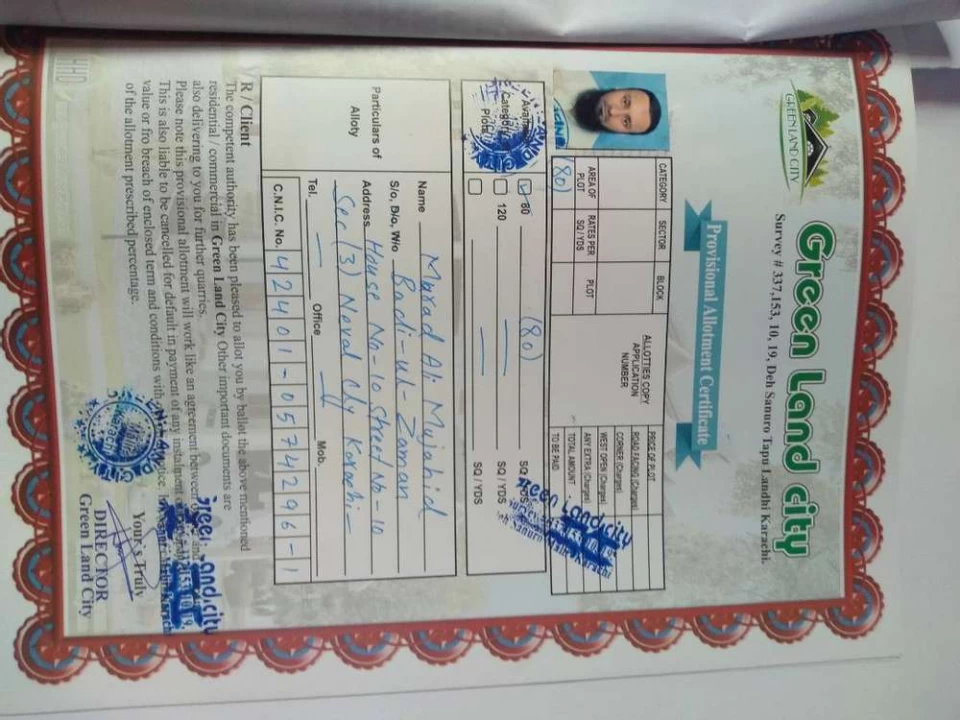 GREEN LAND CITY
Green Land city
Survey # 337,153, 10, 19, Deh Sanuro Tapu Landhi Karachi.
Provisional Allotment Certificate
CATEGORY SECTOR BLOCK ALLOTTIES COPY APPLICATION NUMBER
PRICE OF PLOT
ROAD FACING (Charges)
CORNER (Charges)
WEST OPEN (Charges)
ANY EXTRA (Charges)
TOTAL AMOUNT
TO BE PAID
AREA OF PLOT RATES PER SQ / YDS PLOT
(80)
Green Landcity
Category
80 (80) SQ / YDS
120 SQ / YDS
SQ / YDS
Particulars of Alloty
Name Murad Ali Mujahid
S/o, D/o, W/o Badi-ul-Zaman
Address House No-10 Street No-10
Sec (3) Neval City Karachi-
Tel. Office Mob.
C.N.I.C. No. 42401-0574296-1
R / Client
The competent authority has been pleased to allot you by ballot the above mentioned
residential / commercial in Green Land City Other important documents are
also delivering to you for further quarries.
Please note this provisional allotment will work like an agreement between
This is also liable to be cancelled for default in payment of any instalment
value or fro breach of enclosed term and conditions with
of the allotment prescribed percentage.
Green Landcity
Your,s Truly
DIRECTOR
Green Land City